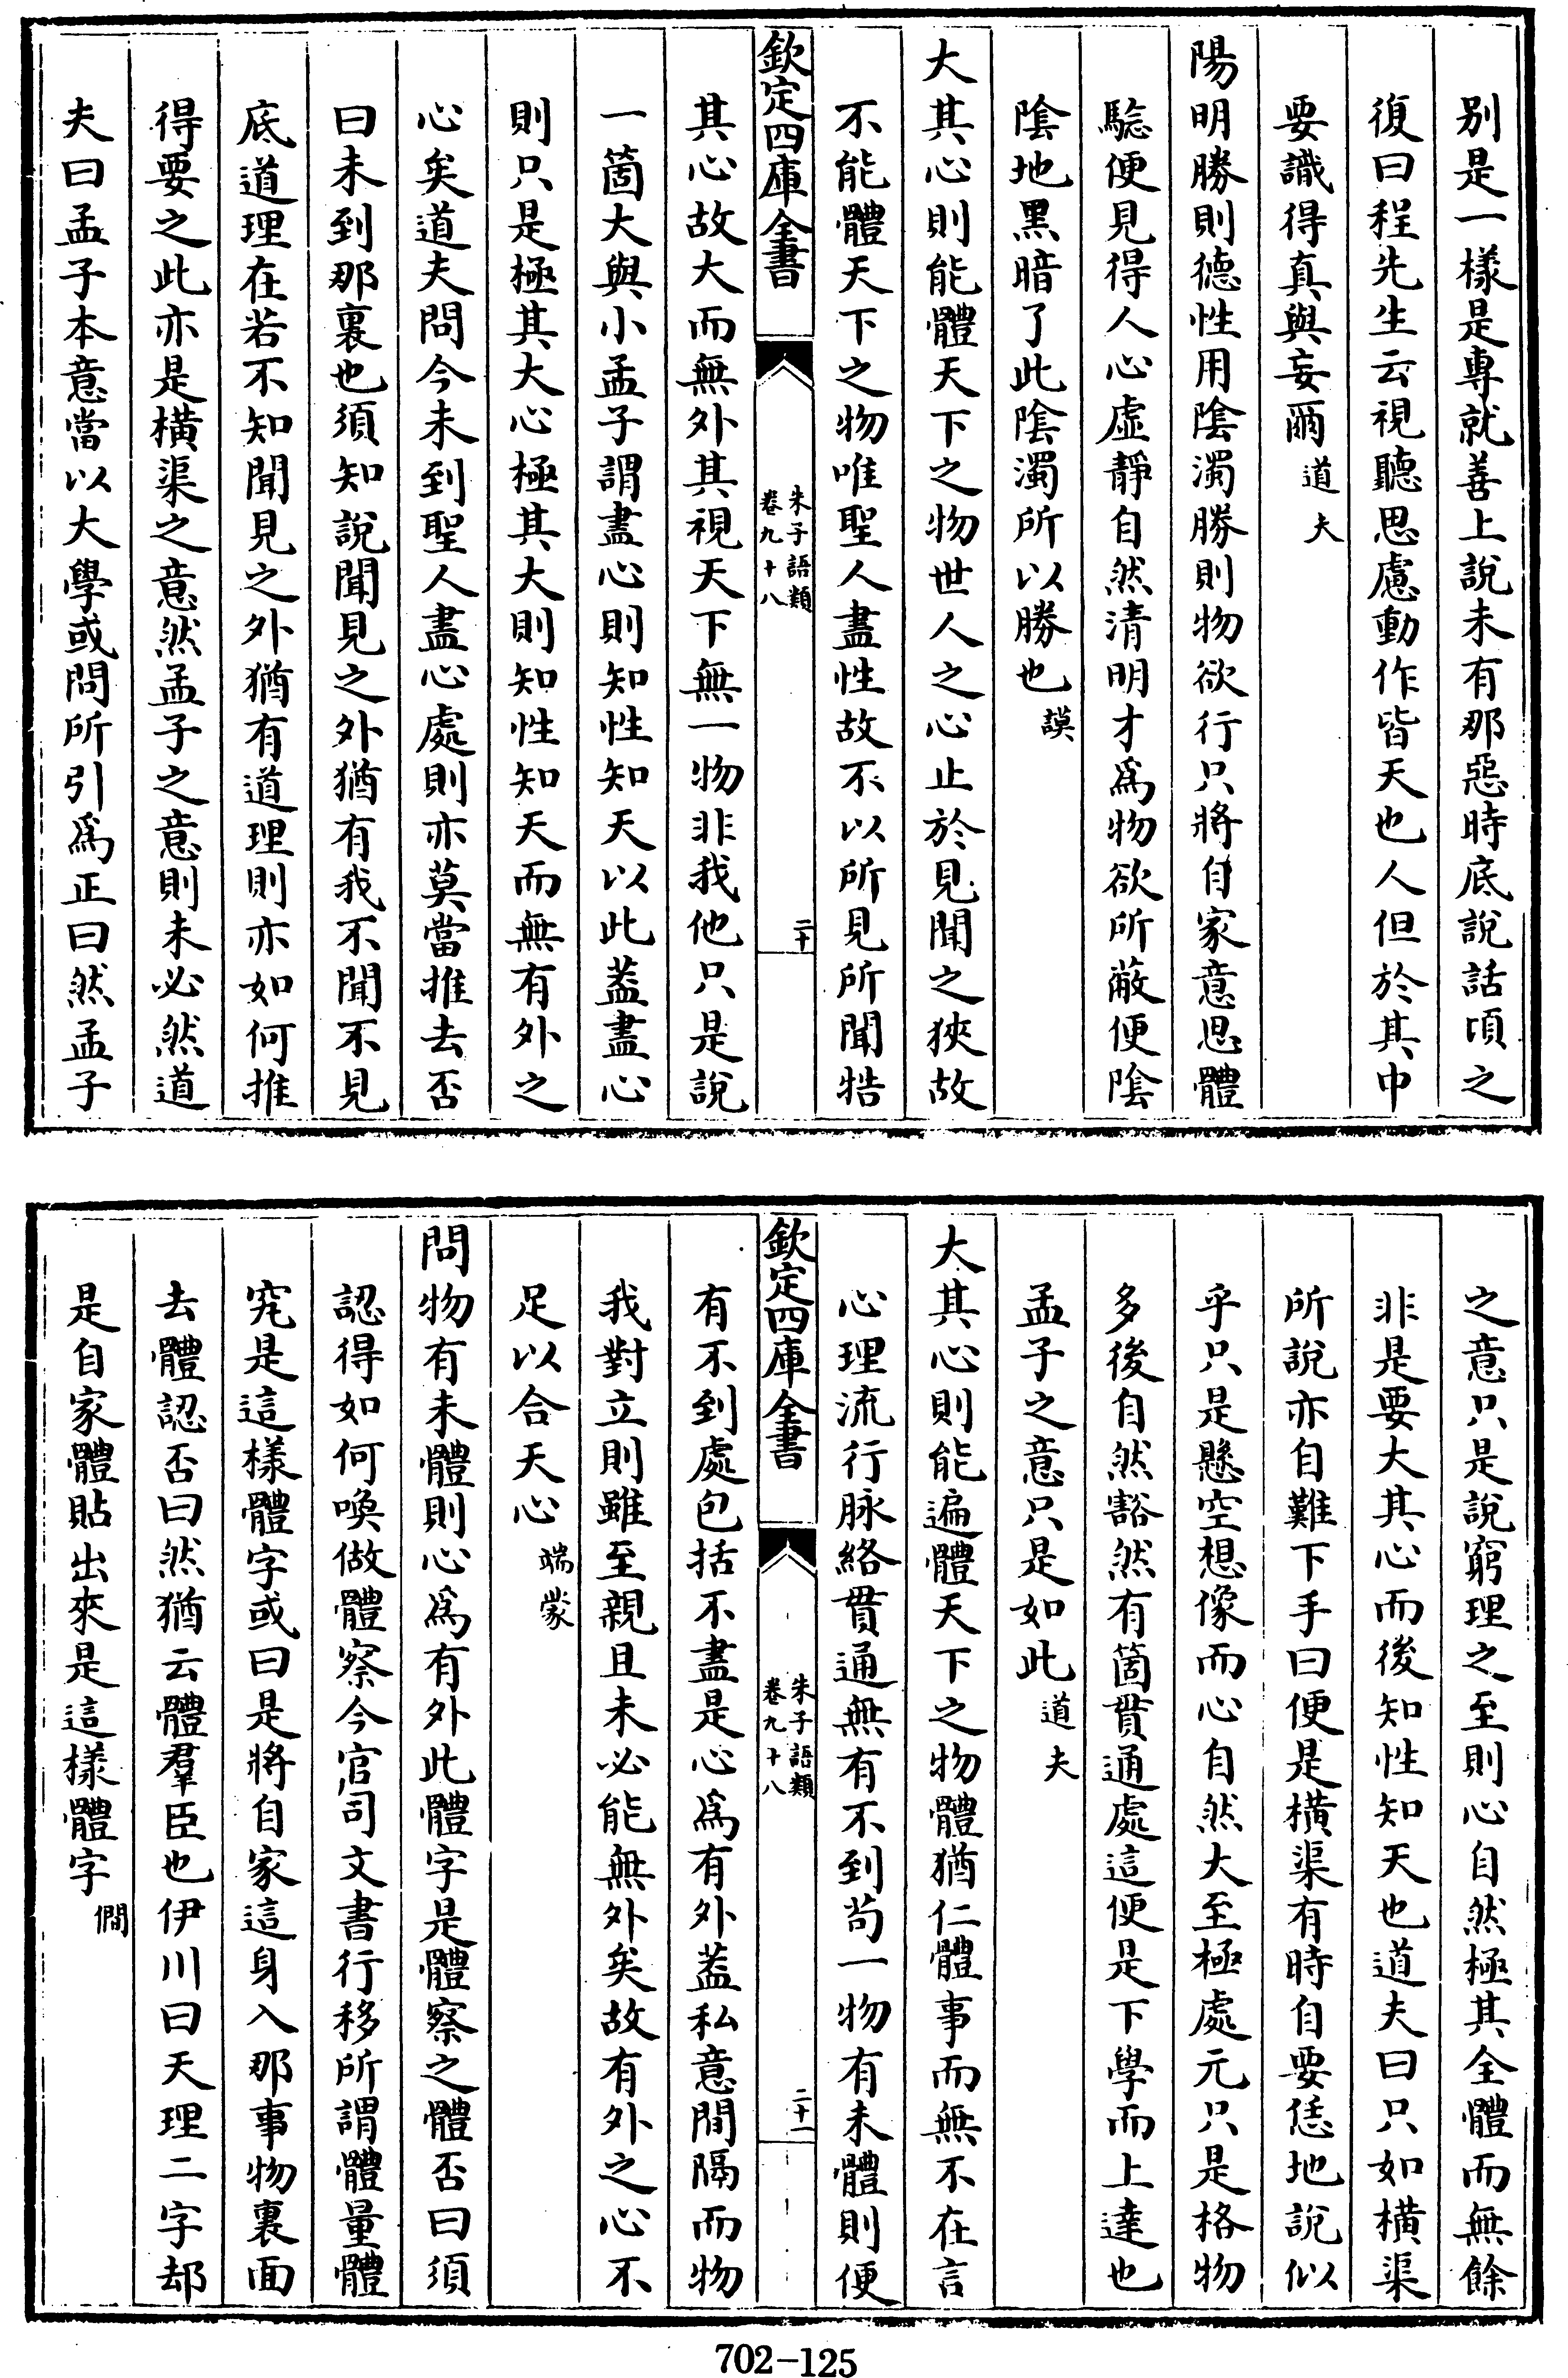 别是一樣是專就善上說未有那惡時底說話頃之
復曰程先生云視聽思慮動作皆天也人但於其中
要識得真與妄爾道夫
陽明勝則德性用陰濁勝則物欲行只將自家意思體
驗便見得人心虛靜自然清明才爲物欲所蔽便陰
陰地黑暗了此陰濁所以勝也謨
大其心則能體天下之物世人之心止於見聞之狹故
不能體天下之物唯聖人盡性故不以所見所聞牿
欽定四庫全書
朱子語類
卷九十八
二十
其心故大而無外其視天下無一物非我他只是說
一箇大與小孟子謂盡心則知性知天以此葢盡心
則只是極其大心極其大則知性知天而無有外之
心矣道夫問今未到聖人盡心處則亦莫當推去否
曰未到那裏也須知說聞見之外猶有我不聞不見
底道理在若不知聞見之外猶有道理則亦如何推
得要之此亦是横渠之意然孟子之意則未必然道
夫曰孟子本意當以大學或問所引爲正曰然孟子
之意只是說窮理之至則心自然極其全體而無餘
非是要大其心而後知性知天也道夫曰只如横渠
所說亦自難下手曰便是横渠有時自要恁地說似
乎只是懸空想像而心自然大至極處元只是格物
多後自然豁然有箇貫通處這便是下學而上達也
孟子之意只是如此道夫
大其心則能遍體天下之物體猶仁體事而無不在言
心理流行脉絡貫通無有不到苟一物有未體則便
欽定四庫全書
朱子語類
卷九十八
二十一
有不到處包括不盡是心爲有外葢私意間隔而物
我對立則雖至親且未必能無外矣故有外之心不
足以合天心端蒙
問物有未體則心爲有外此體字是體察之體否曰須
認得如何喚做體察今官司文書行移所謂體量體
究是這樣體字或曰是將自家這身入那事物裏面
去體認否曰然猶云體羣臣也伊川曰天理二字却
是自家體貼出來是這樣體字僩
702-125